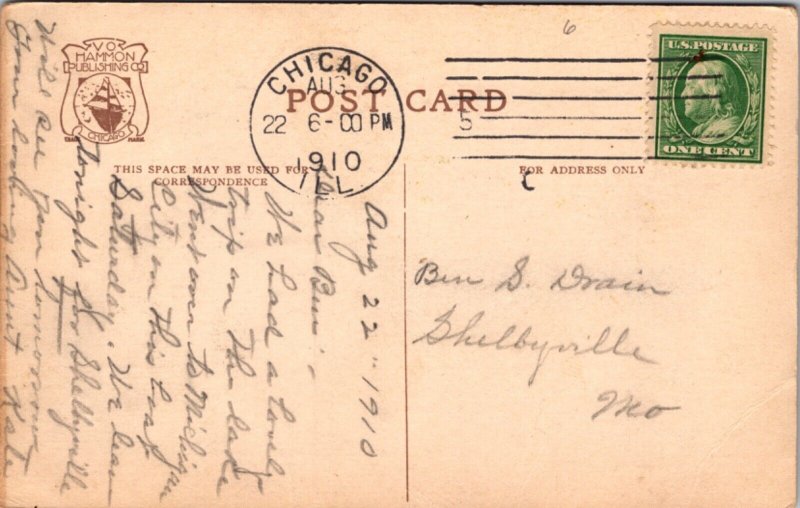 V.O.
HAMMON
PUBLISHING CO
CHICAGO
TRADE MARK
POST CARD
CHICAGO
AUG
22 6-00 PM
1910
ILL
5
6
U.S. POSTAGE
ONE CENT
THIS SPACE MAY BE USED FOR
CORRESPONDENCE
FOR ADDRESS ONLY
Aug 22" 1910
Dear Ben:
We had a lovely
trip on the lake
Went over to Michigan
City on this boat
Saturday. We leave
tonight for Shelbyville
Will see you tomorrow
from loving Aunt Kate
Ben S. Drain
Shelbyville
Mo